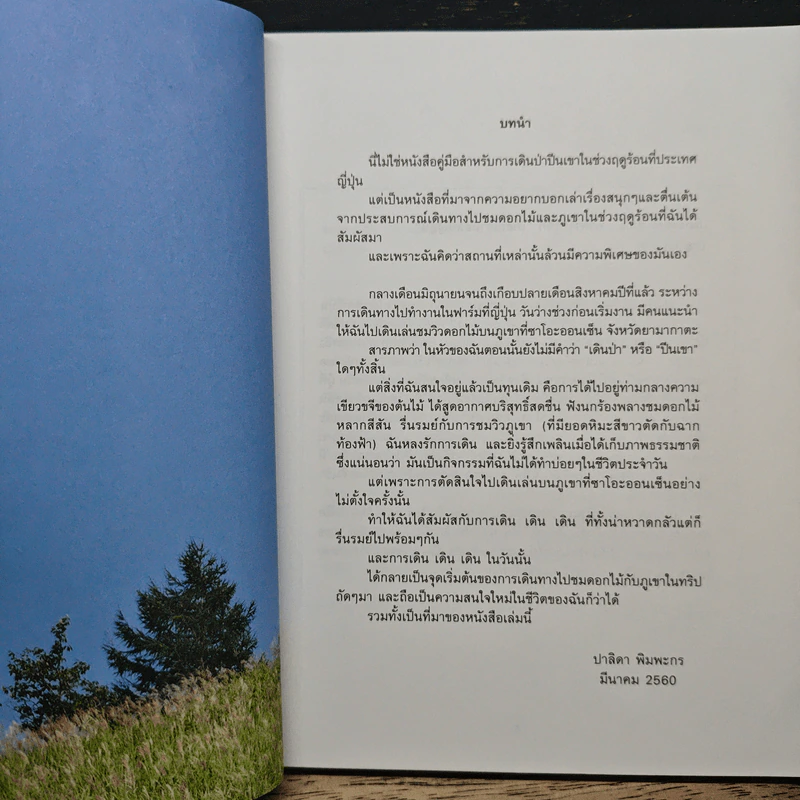 บทนำ
นี่ไม่ใช่หนังสือคู่มือสำหรับการเดินป่าปีนเขาในช่วงฤดูร้อนที่ประเทศ
ญี่ปุ่น
แต่เป็นหนังสือที่มาจากความอยากบอกเล่าเรื่องสนุกๆและตื่นเต้น
จากประสบการณ์เดินทางไปชมดอกไม้และภูเขาในช่วงฤดูร้อนที่ฉันได้
สัมผัสมา
และเพราะฉันคิดว่าสถานที่เหล่านั้นล้วนมีความพิเศษของมันเอง
กลางเดือนมิถุนายนจนถึงเกือบปลายเดือนสิงหาคมปีที่แล้ว ระหว่าง
การเดินทางไปทำงานในฟาร์มที่ญี่ปุ่น วันว่างช่วงก่อนเริ่มงาน มีคนแนะนำ
ให้ฉันไปเดินเล่นชมวิวดอกไม้บนภูเขาที่ซาโอะออนเซ็น จังหวัดยามากาตะ
สารภาพว่า ในหัวของฉันตอนนั้นยังไม่มีคำว่า "เดินป่า" หรือ "ปีนเขา"
ใดๆทั้งสิ้น
แต่สิ่งที่ฉันสนใจอยู่แล้วเป็นทุนเดิม คือการได้ไปอยู่ท่ามกลางความ
เขียวขจีของต้นไม้ ได้สูดอากาศบริสุทธิ์สดชื่น ฟังนกร้องพลางชมดอกไม้
หลากสีสัน รื่นรมย์กับการชมวิวภูเขา (ที่มียอดหิมะสีขาวตัดกับฉาก
ท้องฟ้า) ฉันหลงรักการเดิน และยิ่งรู้สึกเพลินเมื่อได้เก็บภาพธรรมชาติ
ซึ่งแน่นอนว่า มันเป็นกิจกรรมที่ฉันไม่ได้ทำบ่อยๆในชีวิตประจำวัน
แต่เพราะการตัดสินใจไปเดินเล่นบนภูเขาที่ซาโอะออนเซ็นอย่าง
ไม่ตั้งใจครั้งนั้น
ทำให้ฉันได้สัมผัสกับการเดิน เดิน เดิน ที่ทั้งน่าหวาดกลัวแต่ก็
รื่นรมย์ไปพร้อมๆกัน
และการเดิน เดิน เดิน ในวันนั้น
ได้กลายเป็นจุดเริ่มต้นของการเดินทางไปชมดอกไม้กับภูเขาในทริป
ถัดๆมา และถือเป็นความสนใจใหม่ในชีวิตของฉันก็ว่าได้
รวมทั้งเป็นที่มาของหนังสือเล่มนี้
ปาลิดา พิมพะกร
มีนาคม 2560